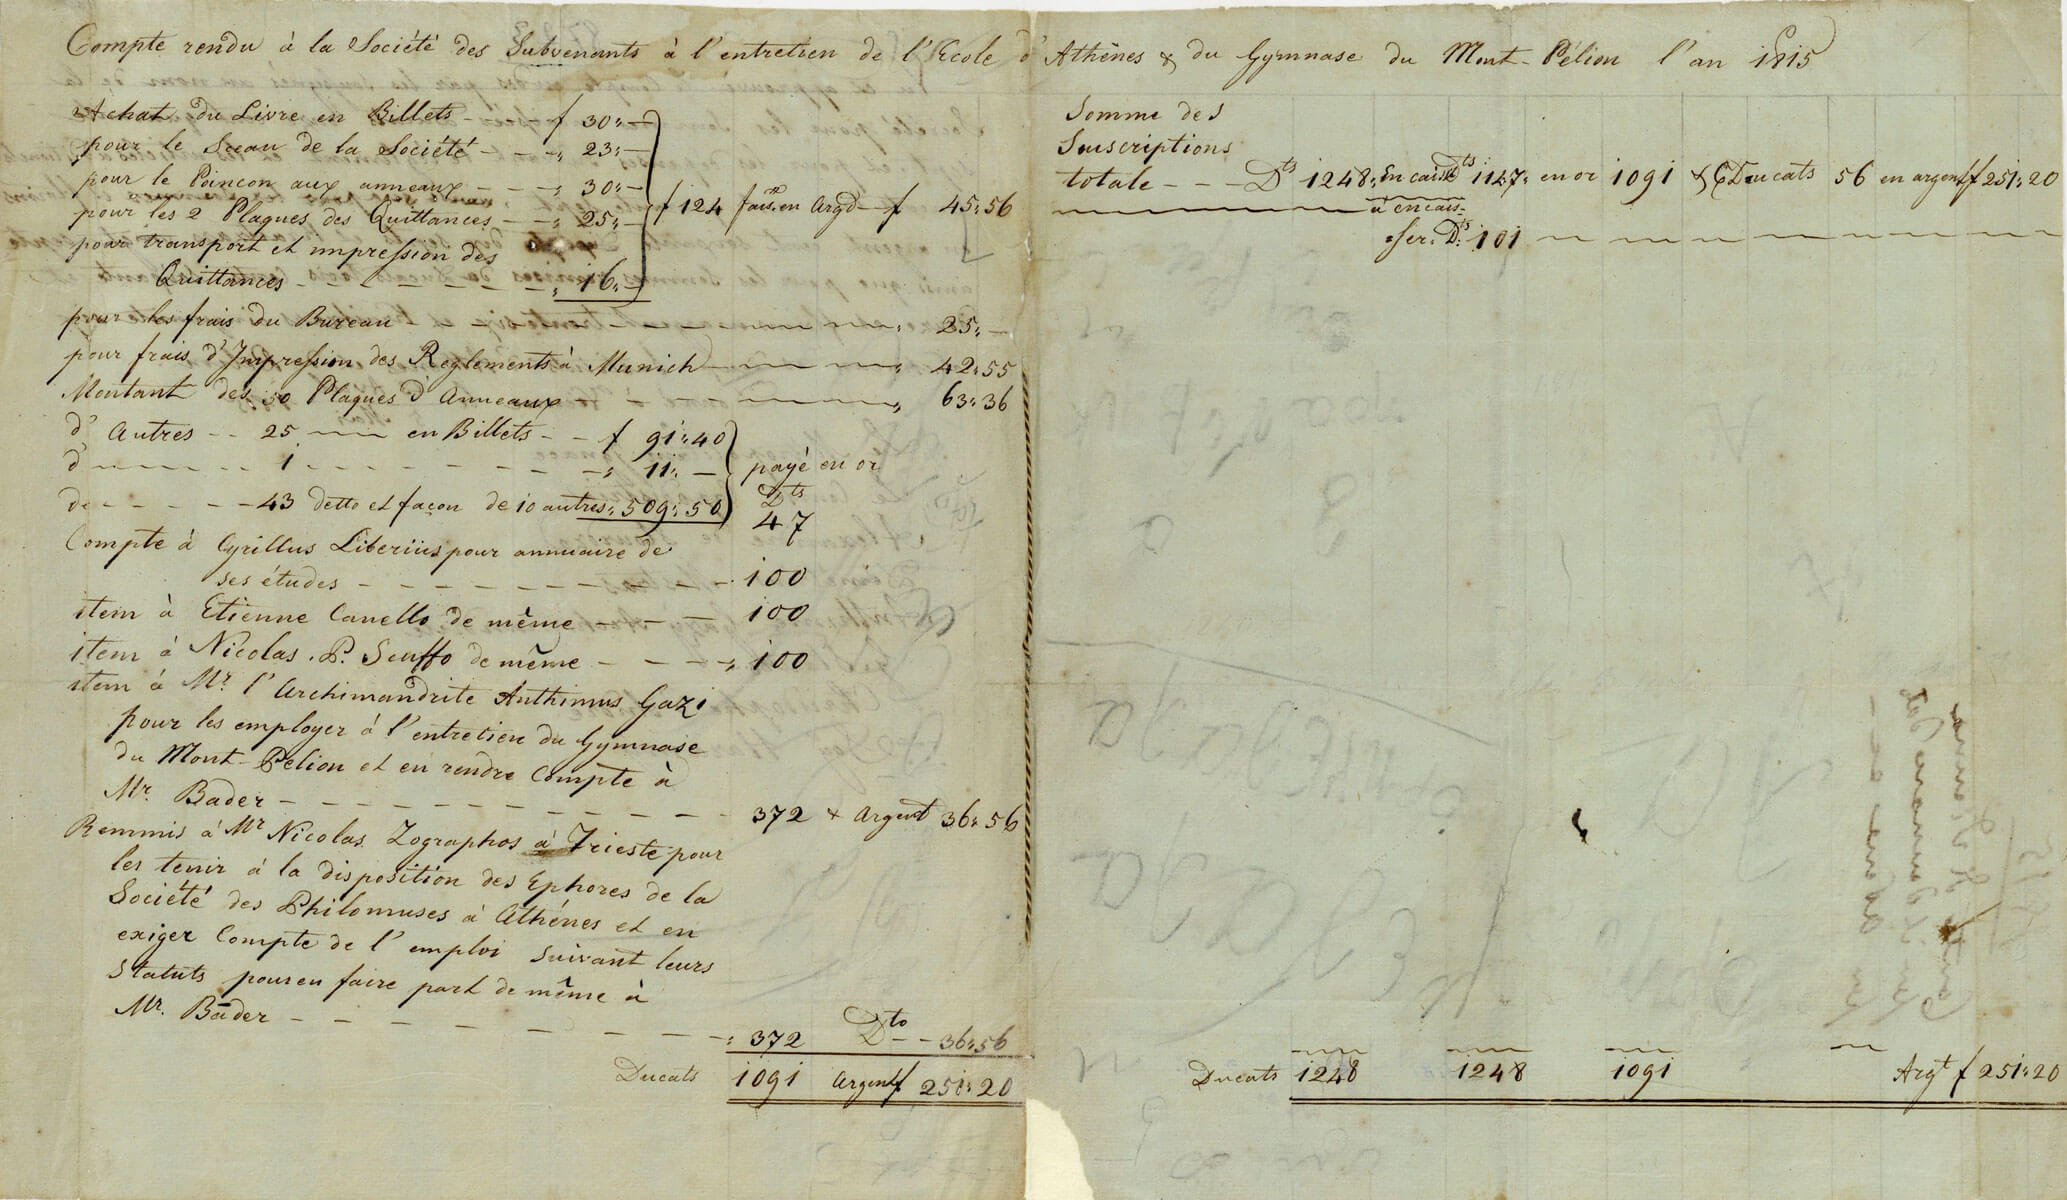 Compte rendu à la Société des Subvenants à l'entretien de l'Ecole d'Athênes & du Gymnase du Mont-Pélion l'an 1815
Achat du Livre en Billets - - f 30,,—
pour le Sceau de la Société - - - ,, 23,,—
pour le Poinçon aux anneaux - - - ,, 30,,—
pour les 2 Plaques des Quittances - - ,, 25,,—
f 124 fais.en Argd — f 45,,56
pour transport et impression des
Quittances - - - - - - - ,, 16,,—
pour les frais du Bureau - - - - ,, 25,,—
pour frais d'Impression des Reglements à Munich — ,, 42,,55
Montant des 50 Plaques d'Anneaux - - - - ,, 63,,36
d' Autres - - 25 — en Billets - - f 91,,40
d — - - 1 - - - - - - - ,, 11,,—
payé en or
de - - - - - 43 detto et façon de 10 autres,, 509,,50
Dts
47
Compte à Cyrillus Liberiüs pour annuaire de
ses études - - - - - - - - - - 100
item à Etienne Canello de même - - - 100
item à Nicolas. P. Scuffo de même - - - - ,, 100
item à Mr. l'Archimandrite Anthimus Gazi
pour les employer à l'entretien du Gymnase
du Mont-Pélion et en rendre Compte à
Mr. Bader - - - - - - - - - - 372 & Argent 36,,56
Remmis à Mr Nicolas Zographos à Trieste pour
les tenir à la disposition des Ephores de la
Société des Philomuses à Athénes et en
exiger Compte de l'emploi suivant leurs
Statuts pour en faire part de même à
Mr. Bader - - - - - - - - - ,, 372 Dto - - 36,,56
Ducats 1091 Argent f 251,,20
Somme des
Suscriptions
totale - - - Dts 1248,, En caisse Dts 1147,, en or 1091 & Ducats 56 en argent f 251,,20
à encais-
ser,, Dts 101
Ducats 1248 1248 1091 Argt f 251,,20